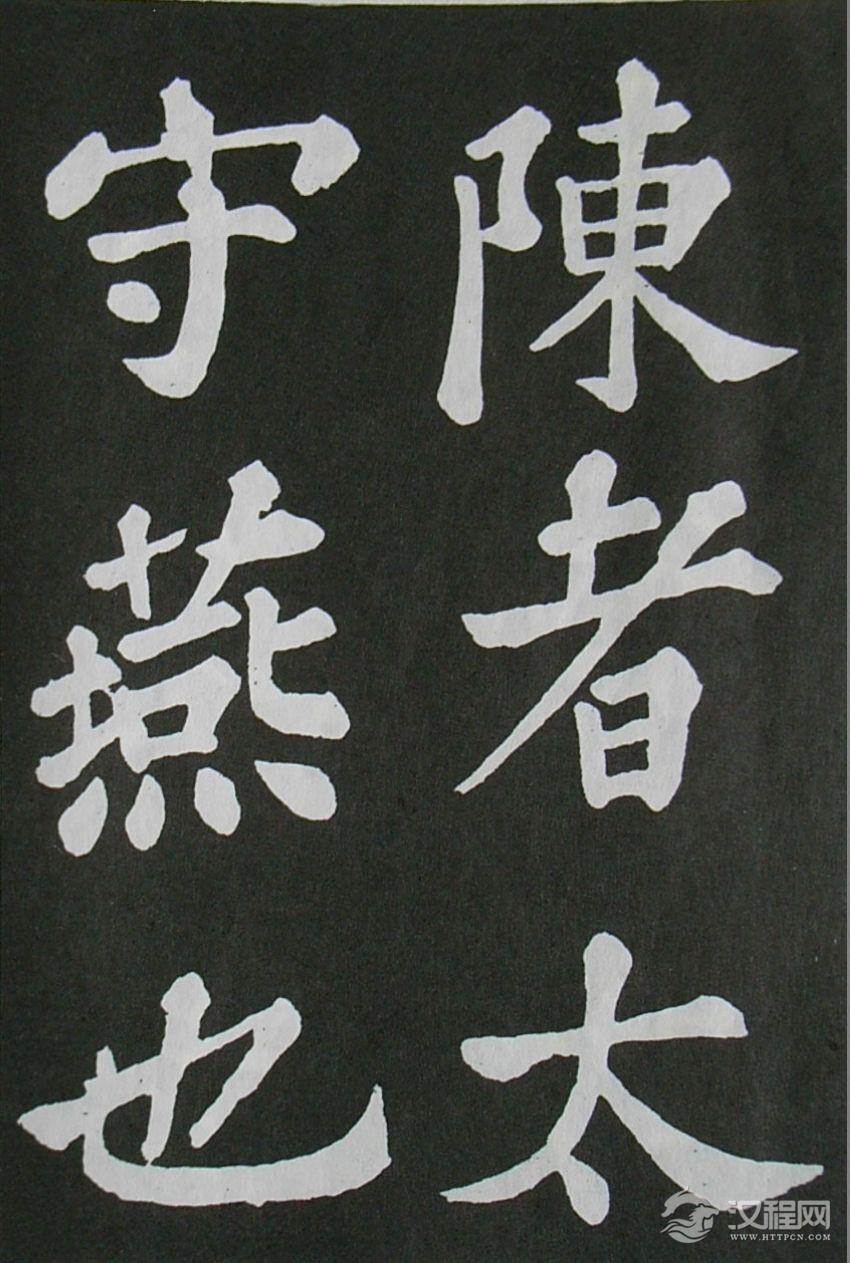 陳者太
守燕也
汉程网
WWW.HTTPCN.COM